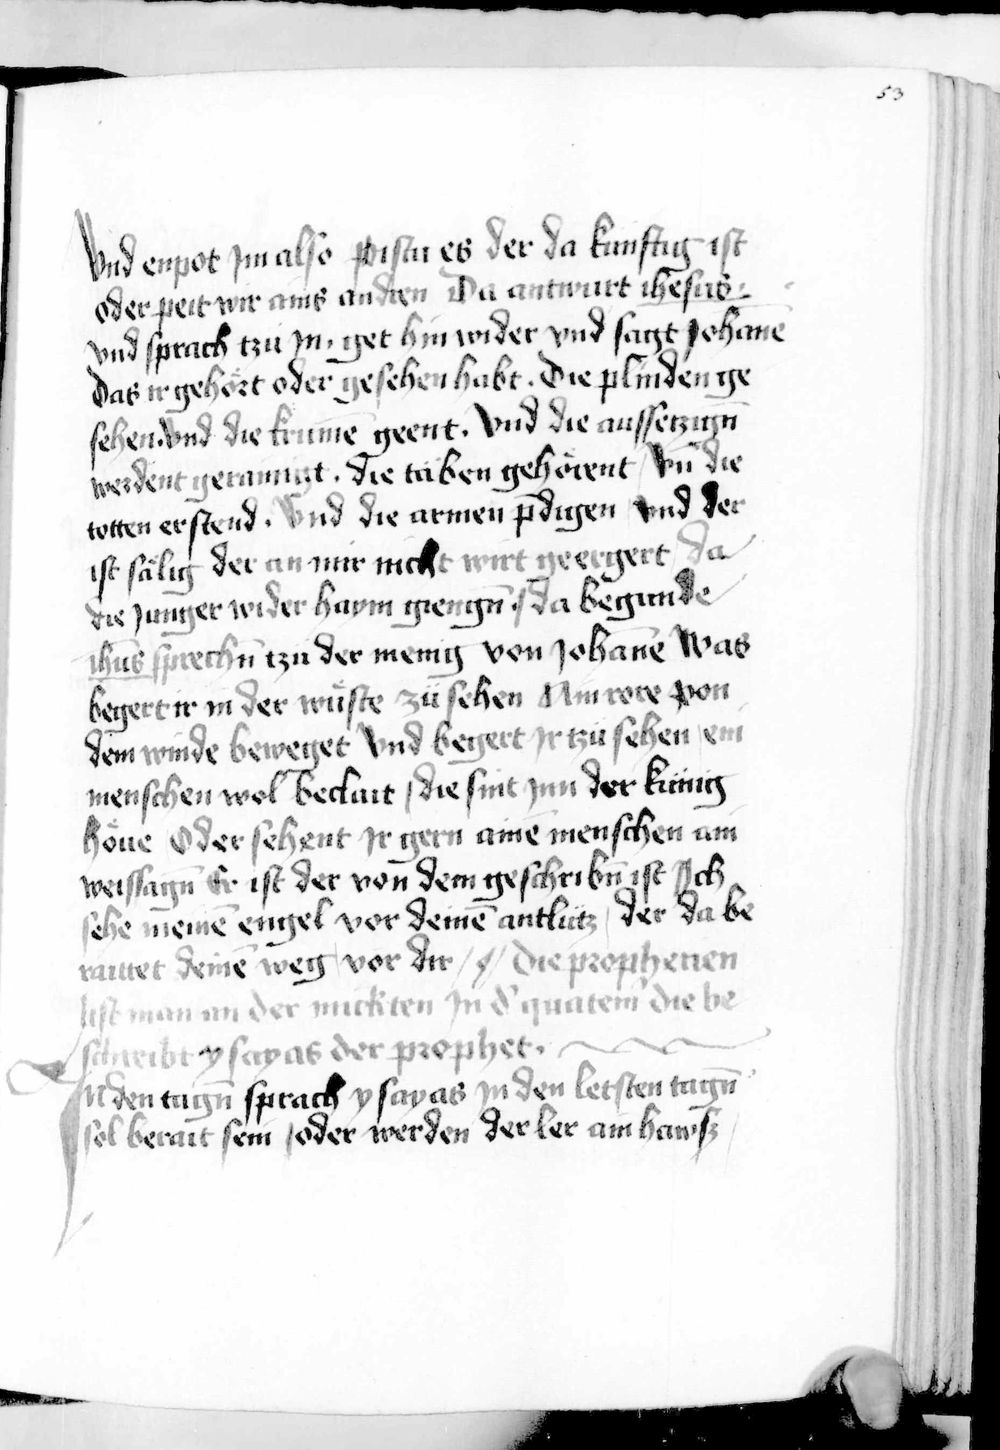 53
Vnd enpot Jm also Pistu es der da kunftig ist
oder peit wir ains andren Da antwurt ihesus.
vnd sprach tzu in, get hin wider vnd sagt Johanē
Das ir gehört oder gesehen habt. Die plinden ge
sehen. vnd die krumē geent. Vnd die aussetzigñ
werdent geramigt. die taüben gehörent Vñ die
totten erstend. Vnd die armen p̄digen vnd der
ist sälig der an mir nicht wirt geergert / da
die Junger wider haym giengñ. da begunde
ihūs sprechñ tzü der menig von Johanē Was
begert ir in der wüste zü sehen Ain rore von
dem winde beweget Vnd begert Jr tzü sehen ein
menschen wol beclait / die sint Jnn der künig
höue Oder sehent Jr gern ainē menschen ain
weissagñ Er ist der von dem geschribñ ist Jch
sehe meinē engel vor deinē antlütz / der da be
raittet deinē weg vor dir // Die prophecien
list man an der mickten Jn d' quatem̄ die be
schreibt ysayas der prophet.
Jn den tagñ sprach ysayas Jn den letsten tagñ
sol berait sein / oder werden der ler ain hawsz